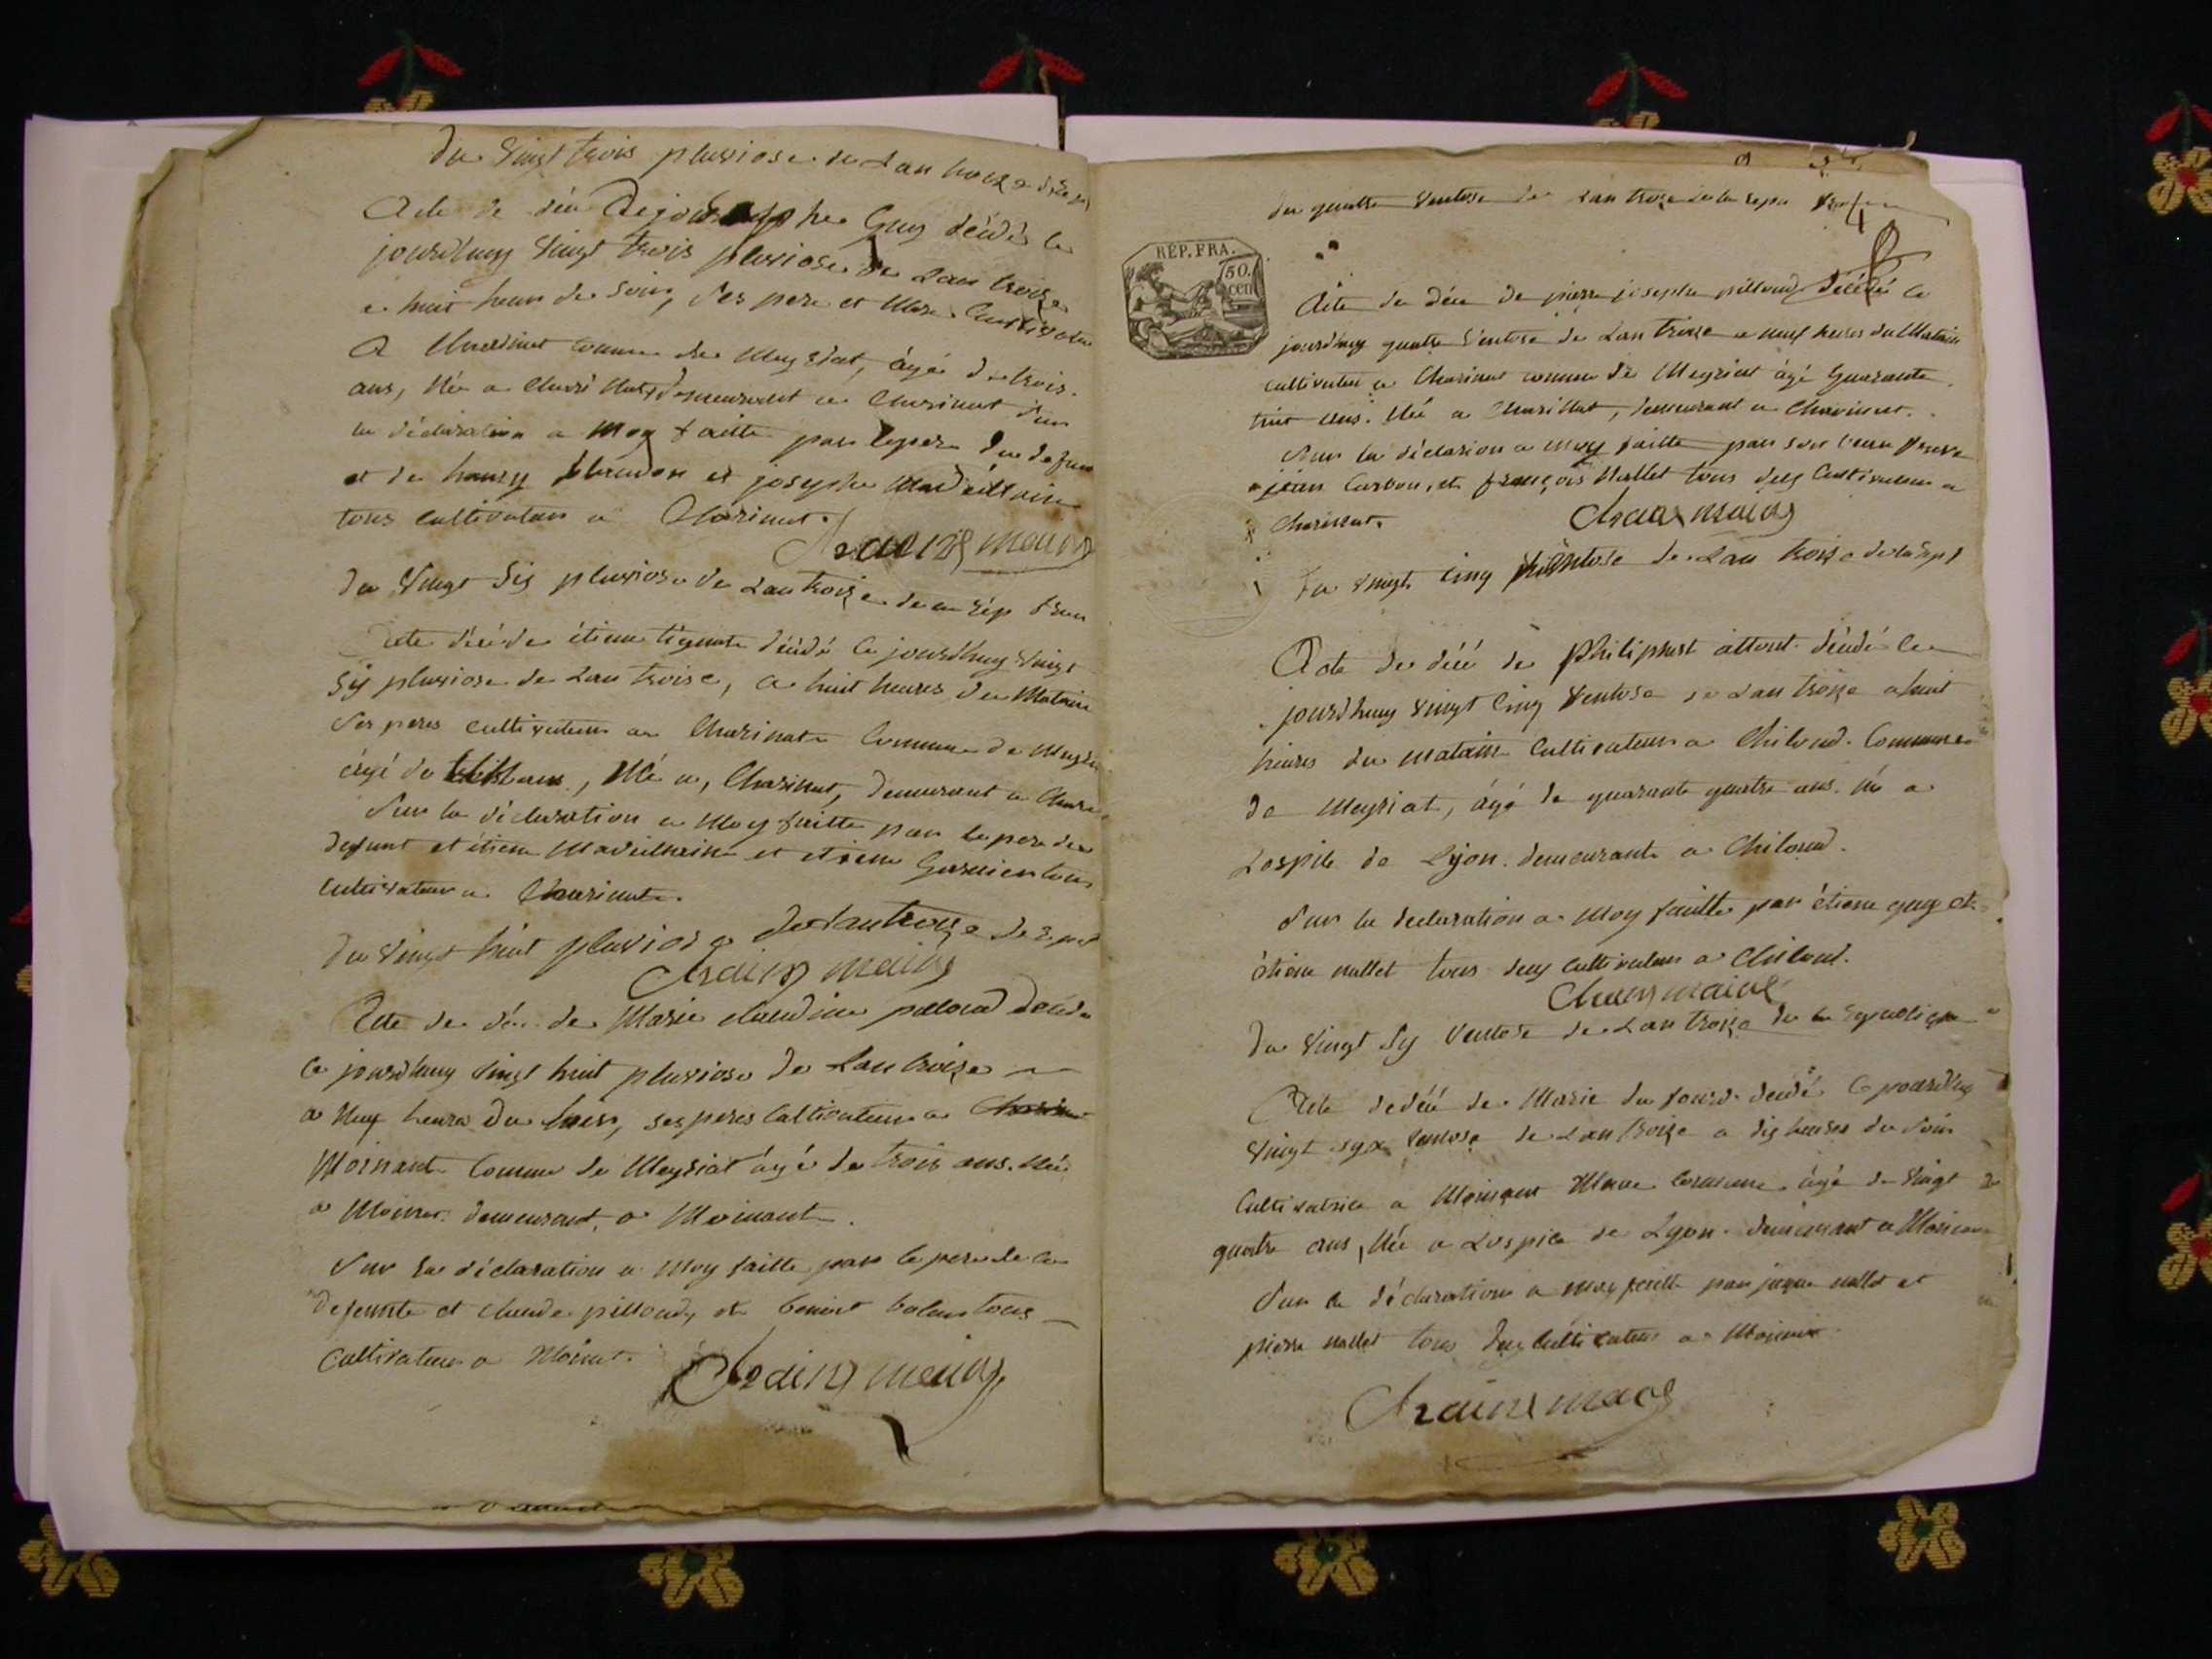 du vingt trois pluviose de Lan troize
Acte de décé de joseph Guy décédé ce
jourdhuy vingt trois pluviose de Lan troize
a huit heur du soir, ses pere et Mere Cultivateur
A Charinat comune de Meyriat, âgé de trois
ans, Née a Charinat, demeurant a Charinat Sur
la déclaration a moy faitte par le pere du defunt
et de hanry et josephe Maveillain
tous cultivateur a Charinat.
Chrain maire
du Vingt sis pluviose de Lan troize de la rép fran
Acte décé de étiene décédé ce jourdhuy vingt
sis pluviose de Lan troize, a huit heures du Matain
ses peres cultivateur a Charinat Commune de Meyriat
âgé de ans, Né a, Charinat, demeurant a Chari
Sur la déclaration a Moy faitte par le pere du
defunt et étiene Maveillain et etiene Garnier tous
Cultivateur a Charinat.
du Vingt huit pluviose de Lan troize de rep
Chrain maire
Acte de décé de Marie claudine pilloud décédé
ce jourdhuy vingt huit pluviose de Lan troize
a neuf heures du soir, ses peres Cultivateur a
Moinant Comune de Meyriat âgé de trois ans. Née
a Moinant demeurant a Moinant.
Sur la déclaration a moy faitte par le pere de la
defunte et claude pilloud, et benoit tous
Cultivateur a Moinat.
Chrain maire
du quatre Ventose de Lan troize de la repu
RÉP. FRA.
50.
cen
Acte de déce de pierre josephe pilloud décédé ce
jourdhuy quatre Ventose de Lan troize a neuf heures du Matain
cultivateur a Charinat comune de Meyriat âgé quarante
huit ans. Née a Charinat, demeurant a Charinat.
Sur la déclarion a moy faitte par
jean Carbon, et françois Nallet tous deux Cultivateur a
Charinat.
Chrain maire
du vingt cinq Ventose de Lan troize de la rep
Acte de décé de Philipnest décédé ce
jourdhuy vingt cinq Ventose de Lan troize a huit
heures du matain Cultivateur a Chiloud. Commune
de Meyriat, âgé de quarante quatre ans. né a
Lospice de Lyon. demeurante a Chiloud.
Sur la declaration a Moy faitte par étiene guy et
étiene nallet tous deux Cultivateur a Chiloud.
Chrain maire
du Vingt sy Ventose de Lan troize de la republique
Acte de décé de Marie du four décédé Ce jourdhuy
vingt syx ventose de Lan troize a dix heures du soir
Cultivatrice a Moinant âgé de vingt
quatre ans, Née a Lospice de Lyon. demeurant a Moinant
Sur la déclaration a moy faitte par jaque nallet et
pierre nallet tous deux Cultivateur a Moinant
Chrain maire